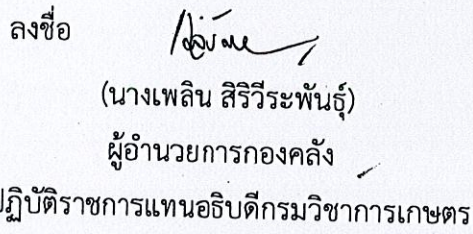 ลงชื่อ
(นางเพลิน สิริวีระพันธุ์)
ผู้อำนวยการกองคลัง
ปฏิบัติราชการแทนอธิบดีกรมวิชาการเกษตร